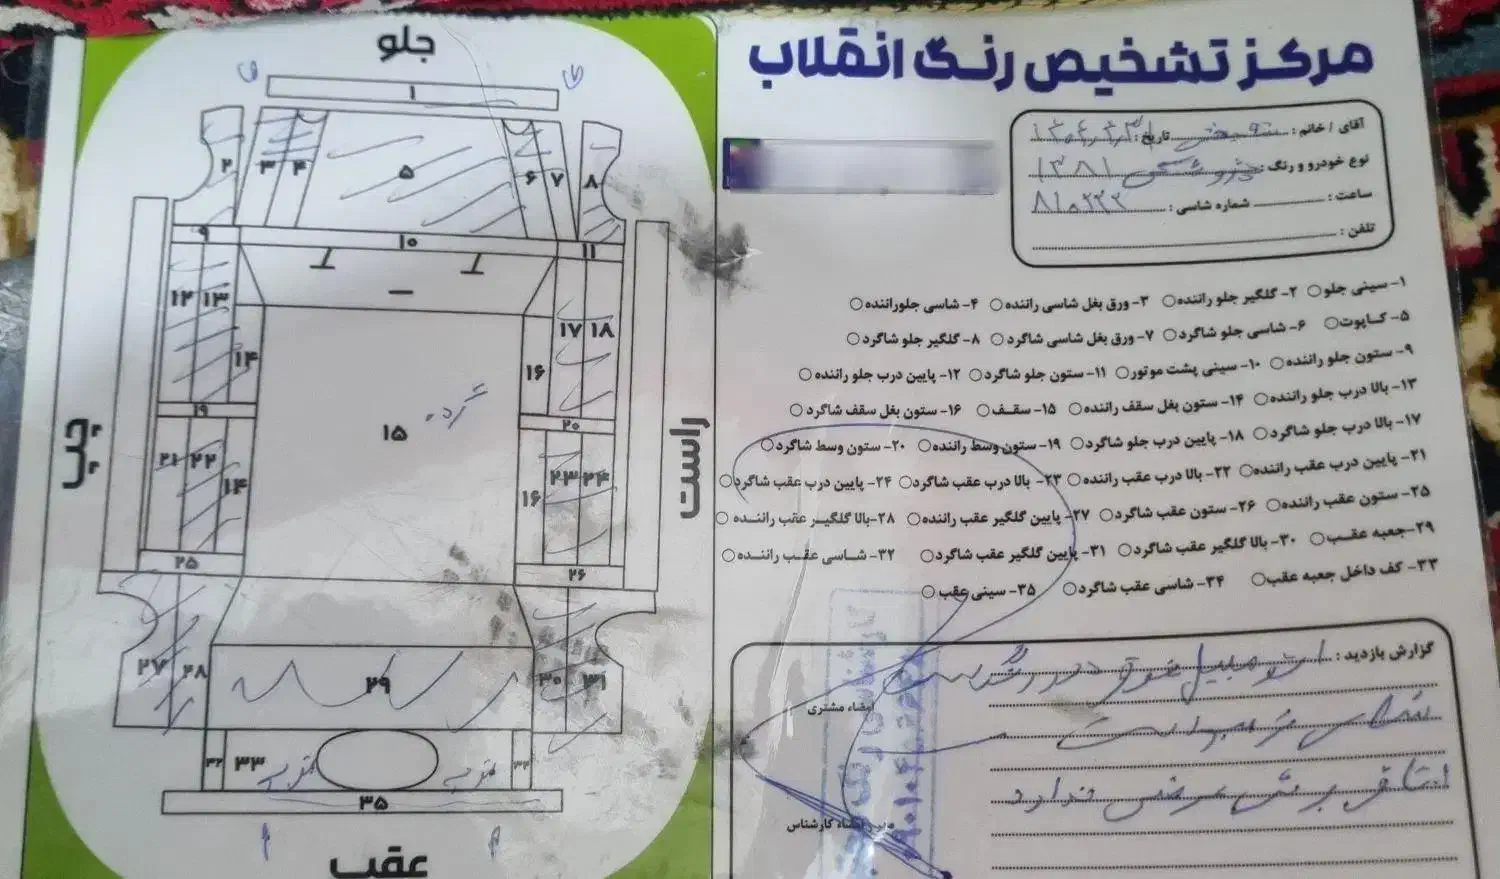 مرکز تشخیص رنگ انقلاب
آقای / خانم : تاریخ :
نوع خودرو و رنگ : ۱۳۸۱
ساعت : شماره شاسی :
تلفن :
۱- سینی جلو ۲- گلگیر جلو راننده ۳- ورق بغل شاسی راننده ۴- شاسی جلوراننده
۵- کـاپوت ۶- شاسی جلو شاگرد ۷- ورق بغل شاسی شاگرد ۸- گلگیر جلو شاگرد
۹- ستون جلو راننده ۱۰- سینی پشت موتور ۱۱- ستون جلو شاگرد ۱۲- پایین درب جلو راننده
۱۳- بالا درب جلو راننده ۱۴- ستون بغل سقف راننده ۱۵- سقـف ۱۶- ستون بغل سقف شاگرد
۱۷- بالا درب جلو شاگرد ۱۸- پایین درب جلو شاگرد ۱۹- ستون وسط راننده ۲۰- ستون وسط شاگرد
۲۱- پایین درب عقب راننده ۲۲- بالا درب عقب راننده ۲۳- بالا درب عقب شاگرد ۲۴- پایین درب عقب شاگرد
۲۵- ستون عقب راننده ۲۶- ستون عقب شاگرد ۲۷- پایین گلگیر عقب راننده ۲۸-بالا گلگیـر عقـب راننـده
۲۹-جعبه عقـب ۳۰- بالا گلگیر عقب شاگرد ۳۱- پایین گلگیر عقب شاگرد ۳۲- شـاسی عقـب راننده
۳۳- کف داخل جعبه عقب ۳۴- شاسی عقب شاگرد ۳۵- سینی عقب
گزارش بازدید : اتومبیل فوق دور رنگ است
امضاء مشتری
امضاء کارشناس
جلو
۱
۲ ۳ ۴ ۵ ۶ ۷ ۸
۹ ۱۰ ۱۱
۱۲ ۱۳ ۱۴ ۱۶ ۱۷ ۱۸
چپ ۱۵ راست
۱۹ ۲۰
۲۱ ۲۲ ۱۴ ۱۶ ۲۳ ۲۴
۲۵ ۲۶
۲۷ ۲۸ ۲۹ ۳۰ ۳۱
۳۲ ۳۳ ۳۴
۳۵
عقب